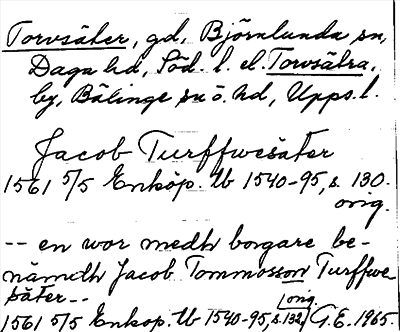 Torvsäter, gd, Björnlunda sn,
Daga hd, Söd. l. el. Torvsätra,
by, Bälinge sn o. hd, Upps. l.
Jacob Turffwesäter
1561 5/5 Enköp. tb 1540-95, s. 130.
orig.
-- en wor medh borgare be-
nämdh Jacob Tommosson Turffwe
säter--
1561 5/5 Enköp. tb 1540-95, s. 132, orig. G.E. 1965.